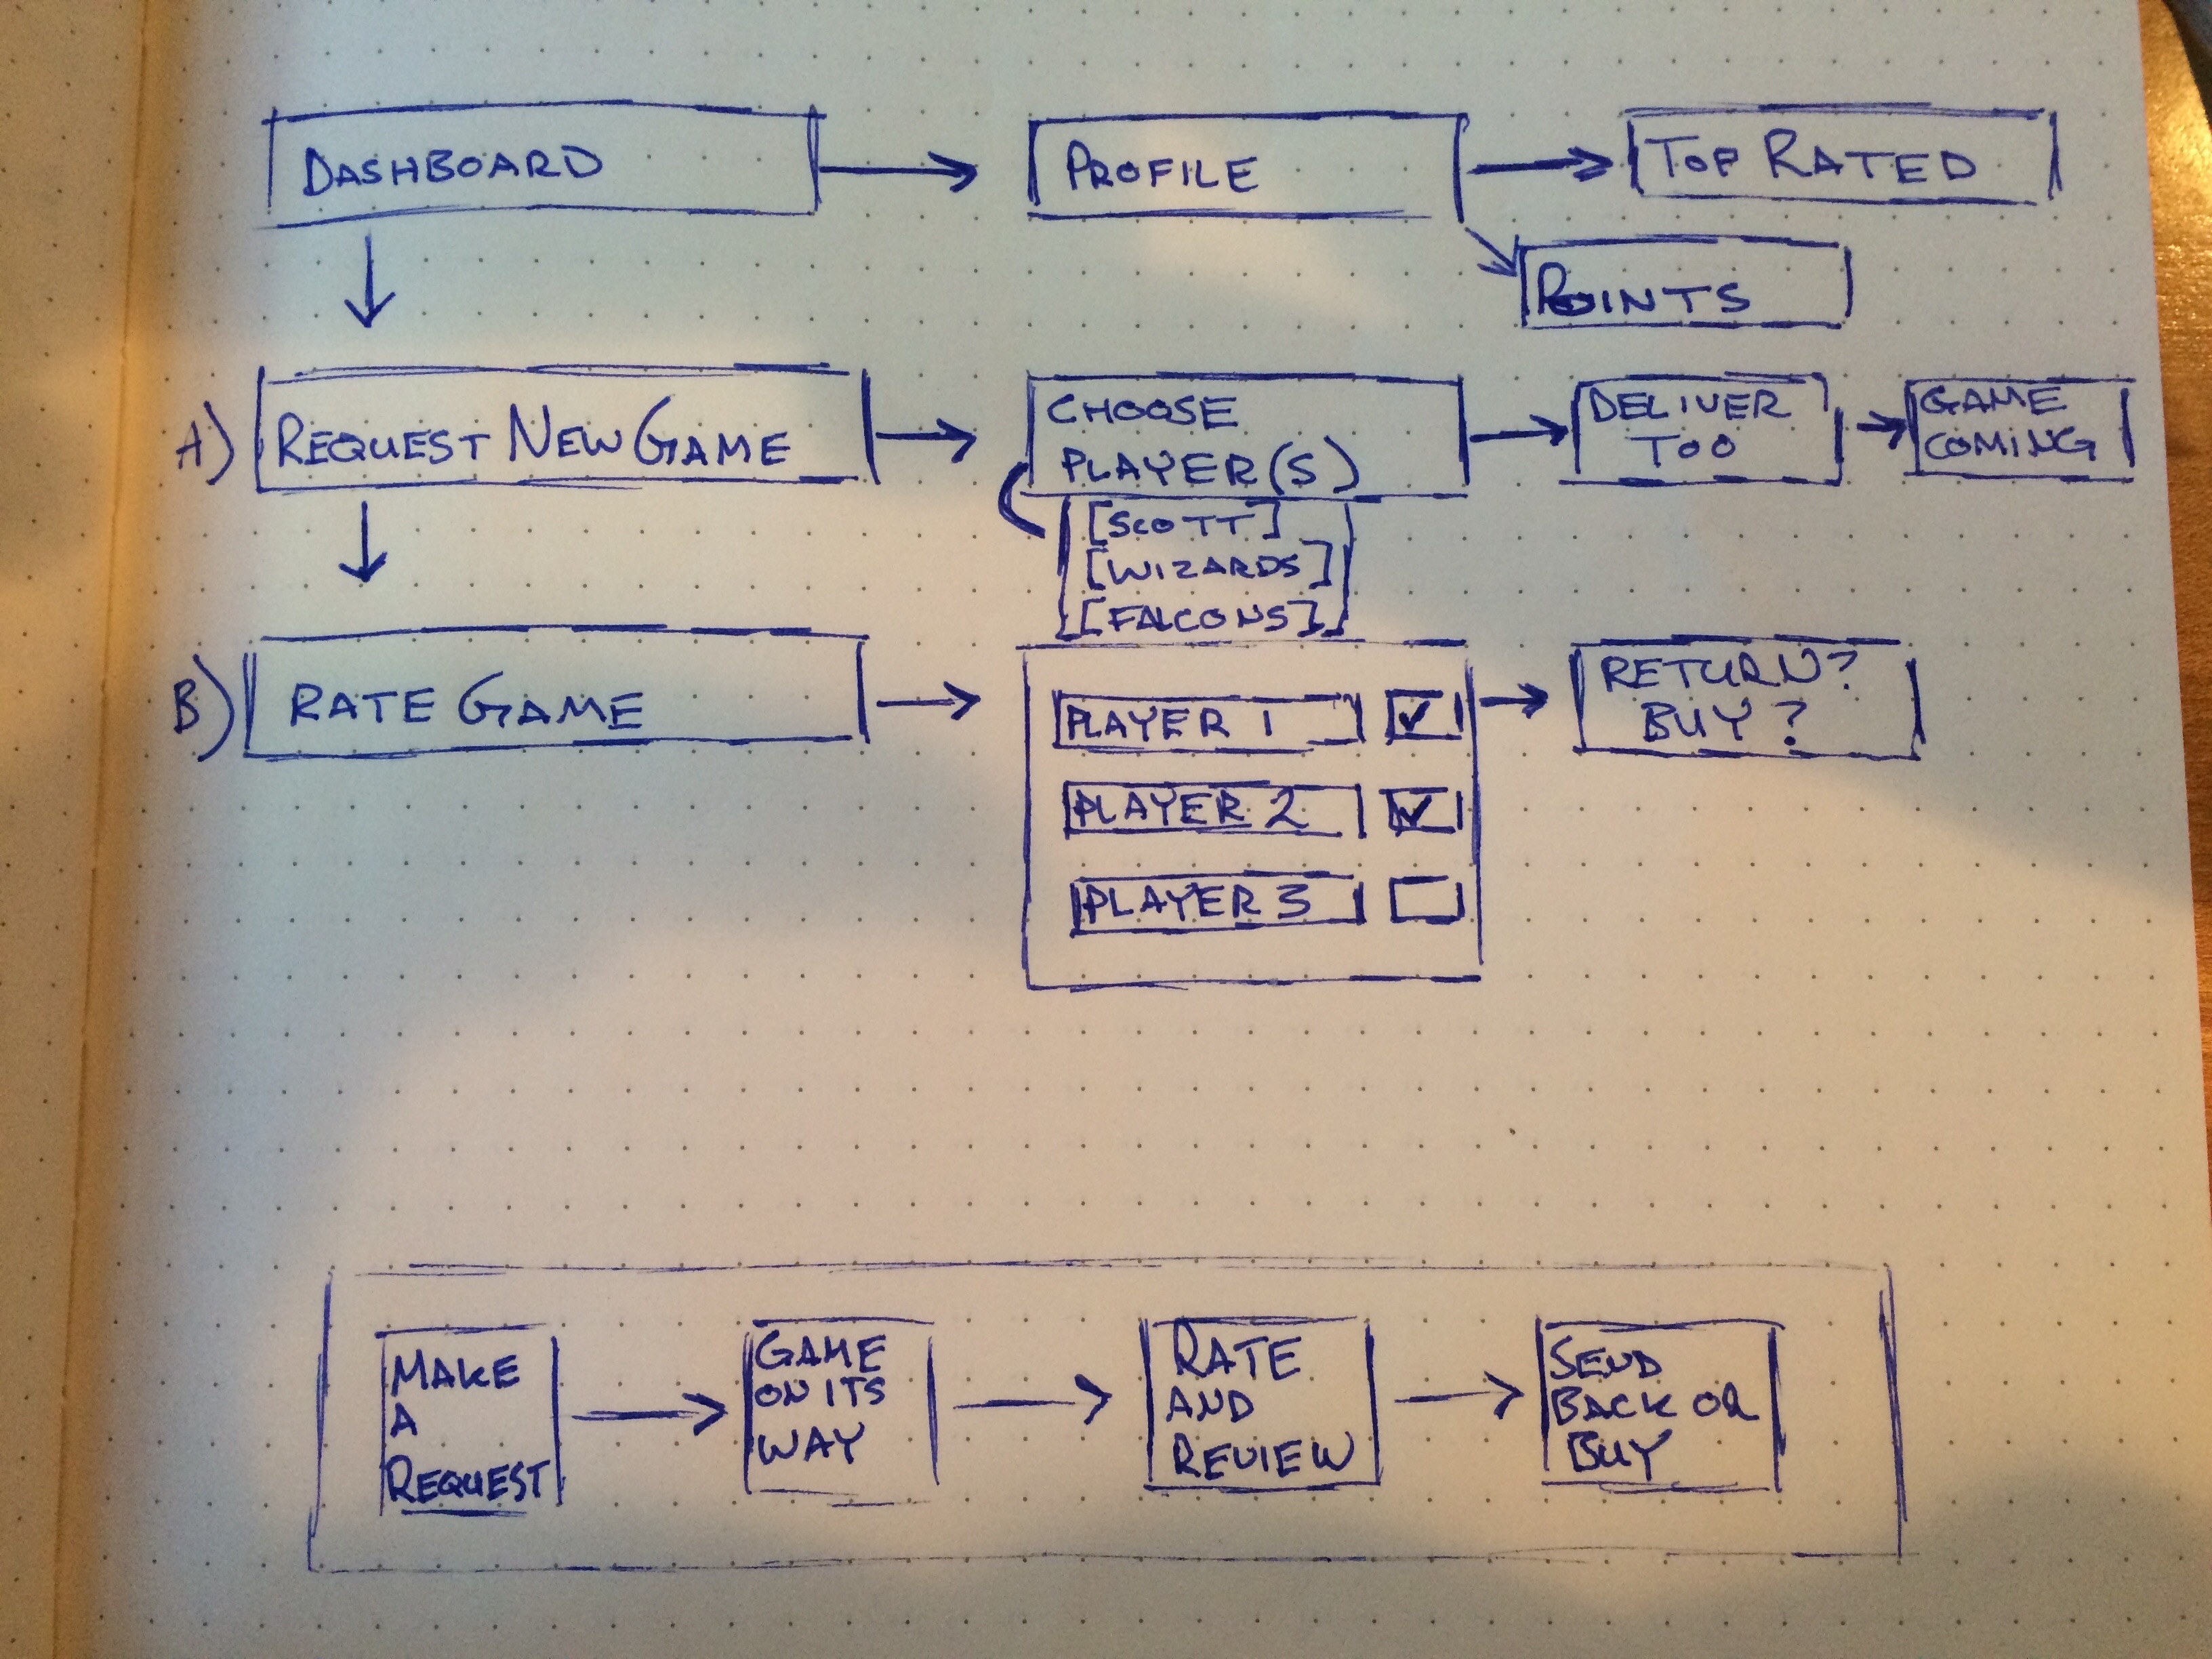 DASHBOARD
PROFILE
TOP RATED
POINTS
A) REQUEST NEW GAME
CHOOSE
PLAYER(S)
[SCOTT]
[WIZARDS]
[FALCONS]
DELIVER
TOO
GAME
COMING
B) RATE GAME
PLAYER 1
PLAYER 2
PLAYER 3
RETURN?
BUY?
MAKE
A
REQUEST
GAME
ON ITS
WAY
RATE
AND
REVIEW
SEND
BACK OR
BUY